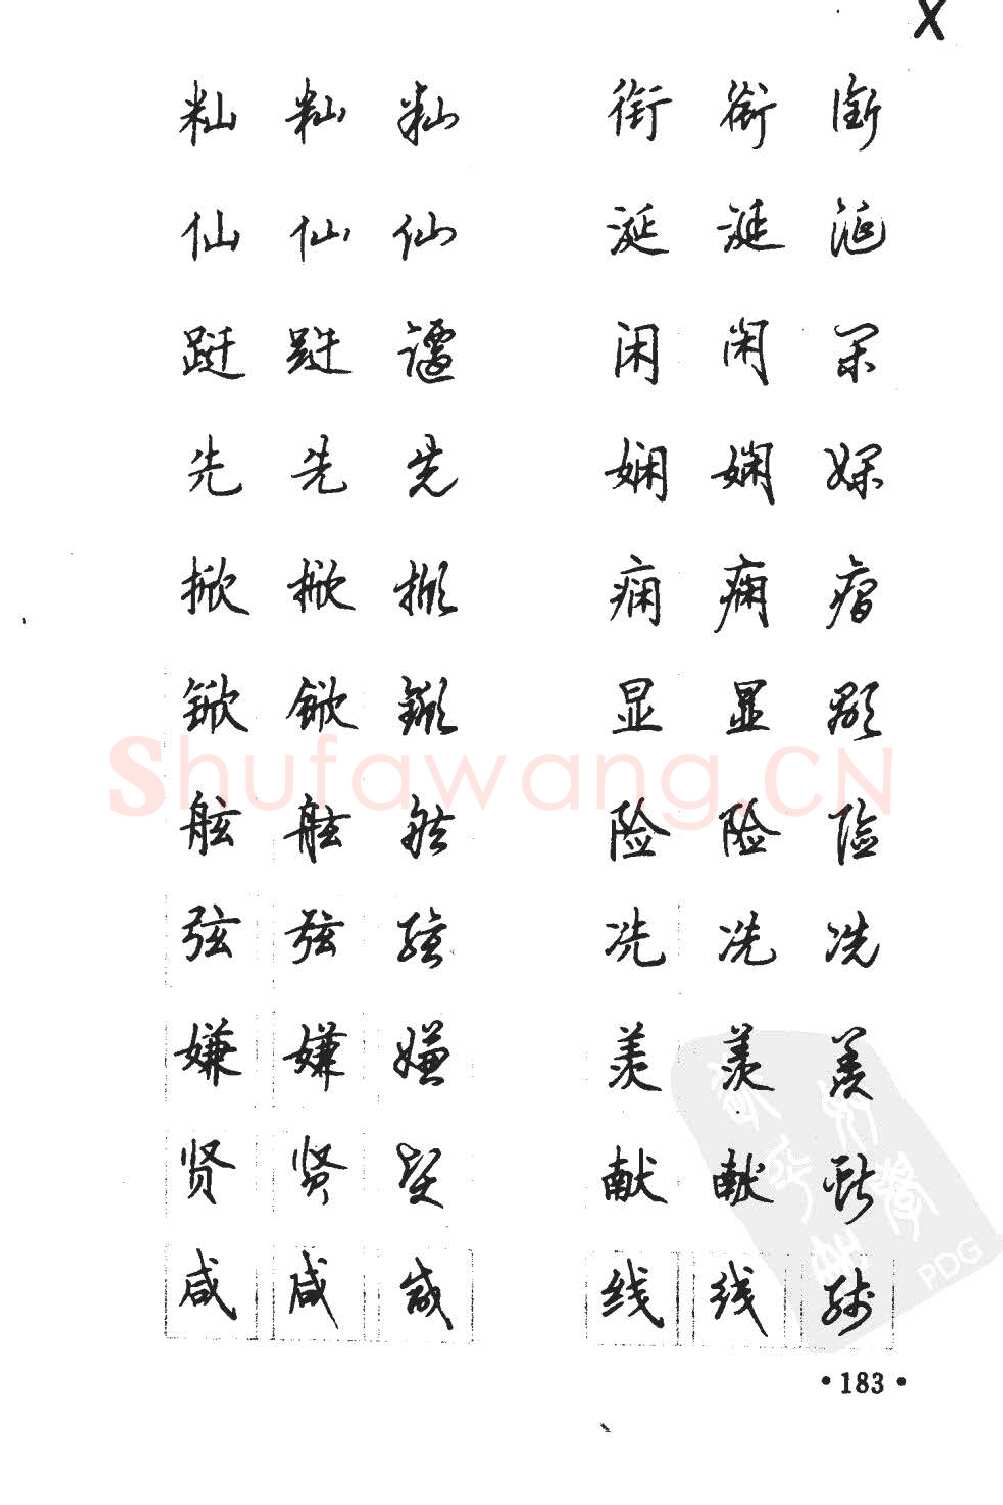 X
籼 籼 籼 衔 衔 衔
仙 仙 仙 涎 涎 涎
跹 跹 闲 闲 闲
先 先 先 娴 娴 娴
掀 掀 掀 痫 痫
锨 锨 锨 显 显 顯
舷 舷 舷 险 险 险
弦 弦 弦 冼 冼 冼
嫌 嫌 嫌 羡 羡 羡
贤 贤 贤 献 献 献
咸 咸 咸 线 线 线
Shufawang.CN
PDG
•183•